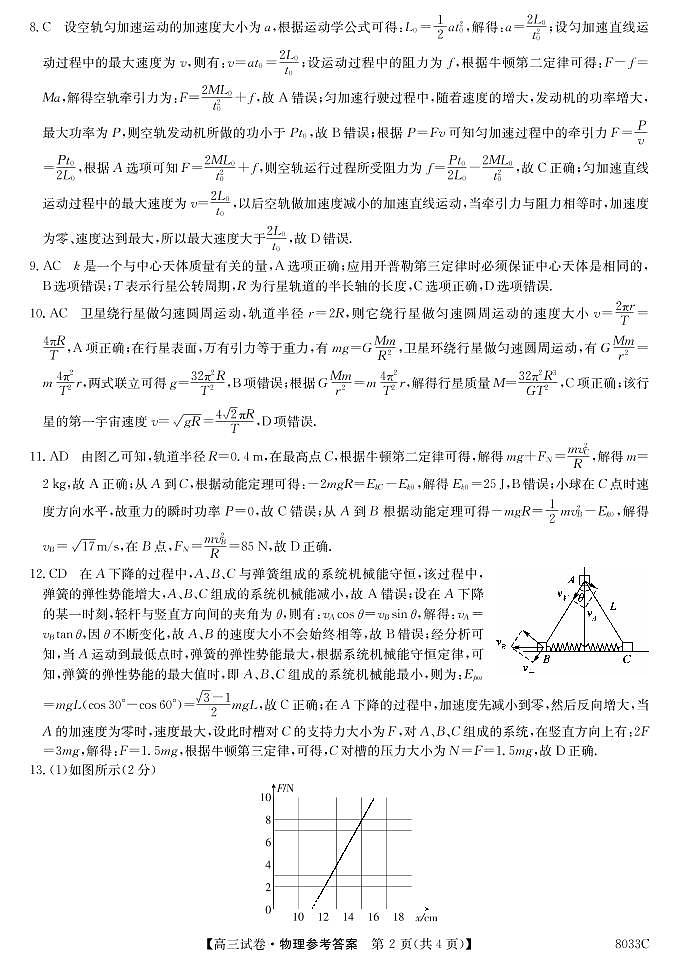 8. C 设空轨匀加速运动的加速度大小为 a,根据运动学公式可得:L₀=\frac{1}{2}at₀²,解得:a=\frac{2L₀}{t₀²};设匀加速直线运
动过程中的最大速度为 v,则有:v=at₀=\frac{2L₀}{t₀};设运动过程中的阻力为 f,根据牛顿第二定律可得:F-f=
Ma,解得空轨牵引力为:F=\frac{2ML₀}{t₀²}+f,故 A 错误;匀加速行驶过程中,随着速度的增大,发动机的功率增大,
最大功率为 P,则空轨发动机所做的功小于 Pt₀,故 B 错误;根据 P=Fv 可知匀加速过程中的牵引力 F=\frac{P}{v}
=\frac{Pt₀}{2L₀},根据 A 选项可知 F=\frac{2ML₀}{t₀²}+f,则空轨运行过程所受阻力为 f=\frac{Pt₀}{2L₀}-\frac{2ML₀}{t₀²},故 C 正确;匀加速直线
运动过程中的最大速度为 v=\frac{2L₀}{t₀},以后空轨做加速度减小的加速直线运动,当牵引力与阻力相等时,加速度
为零、速度达到最大,所以最大速度大于\frac{2L₀}{t₀},故 D 错误.
9. AC k 是一个与中心天体质量有关的量,A 选项正确;应用开普勒第三定律时必须保证中心天体是相同的,
B 选项错误;T 表示行星公转周期,R 为行星轨道的半长轴的长度,C 选项正确,D 选项错误.
10. AC 卫星绕行星做匀速圆周运动,轨道半径 r=2R,则它绕行星做匀速圆周运动的速度大小 v=\frac{2πr}{T}=
\frac{4πR}{T},A 项正确;在行星表面,万有引力等于重力,有 mg=G\frac{Mm}{R²},卫星环绕行星做匀速圆周运动,有 G\frac{Mm}{r²}=
m\frac{4π²}{T²}r,两式联立可得 g=\frac{32π²R}{T²},B 项错误;根据 G\frac{Mm}{r²}=m\frac{4π²}{T²}r,解得行星质量 M=\frac{32π²R³}{GT²},C 项正确;该行
星的第一宇宙速度 v=√(gR)=\frac{4√2πR}{T},D 项错误.
11. AD 由图乙可知,轨道半径 R=0.4 m,在最高点 C,根据牛顿第二定律可得,解得 mg+F_N=\frac{mv_C²}{R},解得 m=
2 kg,故 A 正确;从 A 到 C,根据动能定理可得:-2mgR=E_{kC}-E_{k0},解得 E_{k0}=25 J,B 错误;小球在 C 点时速
度方向水平,故重力的瞬时功率 P=0,故 C 错误;从 A 到 B 根据动能定理可得-mgR=\frac{1}{2}mv_B²-E_{k0},解得
v_B=√17 m/s,在 B 点,F_N=\frac{mv_B²}{R}=85 N,故 D 正确.
12. CD 在 A 下降的过程中,A、B、C 与弹簧组成的系统机械能守恒,该过程中,
弹簧的弹性势能增大,A、B、C 组成的系统机械能减小,故 A 错误;设在 A 下降
的某一时刻,轻杆与竖直方向间的夹角为 θ,则有:v_A cos θ=v_B sin θ,解得:v_A=
v_B tan θ,因 θ 不断变化,故 A、B 的速度大小不会始终相等,故 B 错误;经分析可
知,当 A 运动到最低点时,弹簧的弹性势能最大,根据系统机械能守恒定律,可
知,弹簧的弹性势能的最大值时,即 A、B、C 组成的系统机械能最小,则为:E_{pm}
=mgL(cos 30°-cos 60°)=\frac{√3-1}{2}mgL,故 C 正确;在 A 下降的过程中,加速度先减小到零,然后反向增大,当
A 的加速度为零时,速度最大,设此时槽对 C 的支持力大小为 F,对 A、B、C 组成的系统,在竖直方向上有:2F
=3mg,解得:F=1.5mg,根据牛顿第三定律,可得,C 对槽的压力大小为 N=F=1.5mg,故 D 正确.
A
θ
L
v_A
v_B
B
C
13. (1)如图所示(2 分)
F/N
10
8
6
4
2
0
10 12 14 16 18 x/cm
【高三试卷·物理参考答案 第 2 页(共 4 页)】 8033C